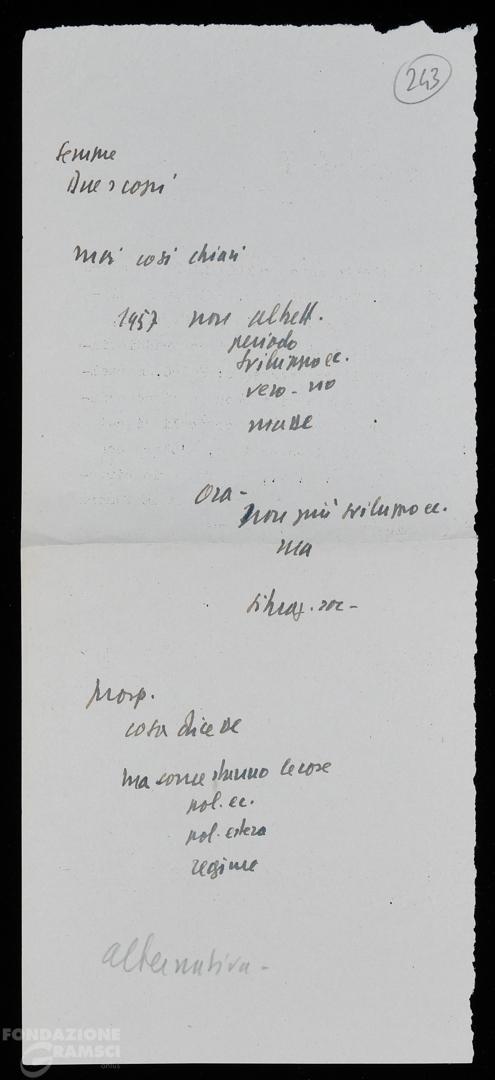 243
Due scopi
mai così chiari
1957 non
periodo
sviluppo ec.
vero - no
masse
Ora -
non più sviluppo ec.
ma
situaz. soc -
Prosp.
cosa dice
ma come stanno le cose
pol. ec.
pol. estera
regime
alternativa -
FONDAZIONE
GRAMSCI
onlus